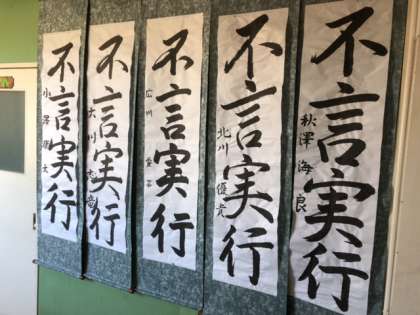 不言実行
秋澤海良
不言実行
北川優貴
不言実行
広川
不言実行
大川
不言実行